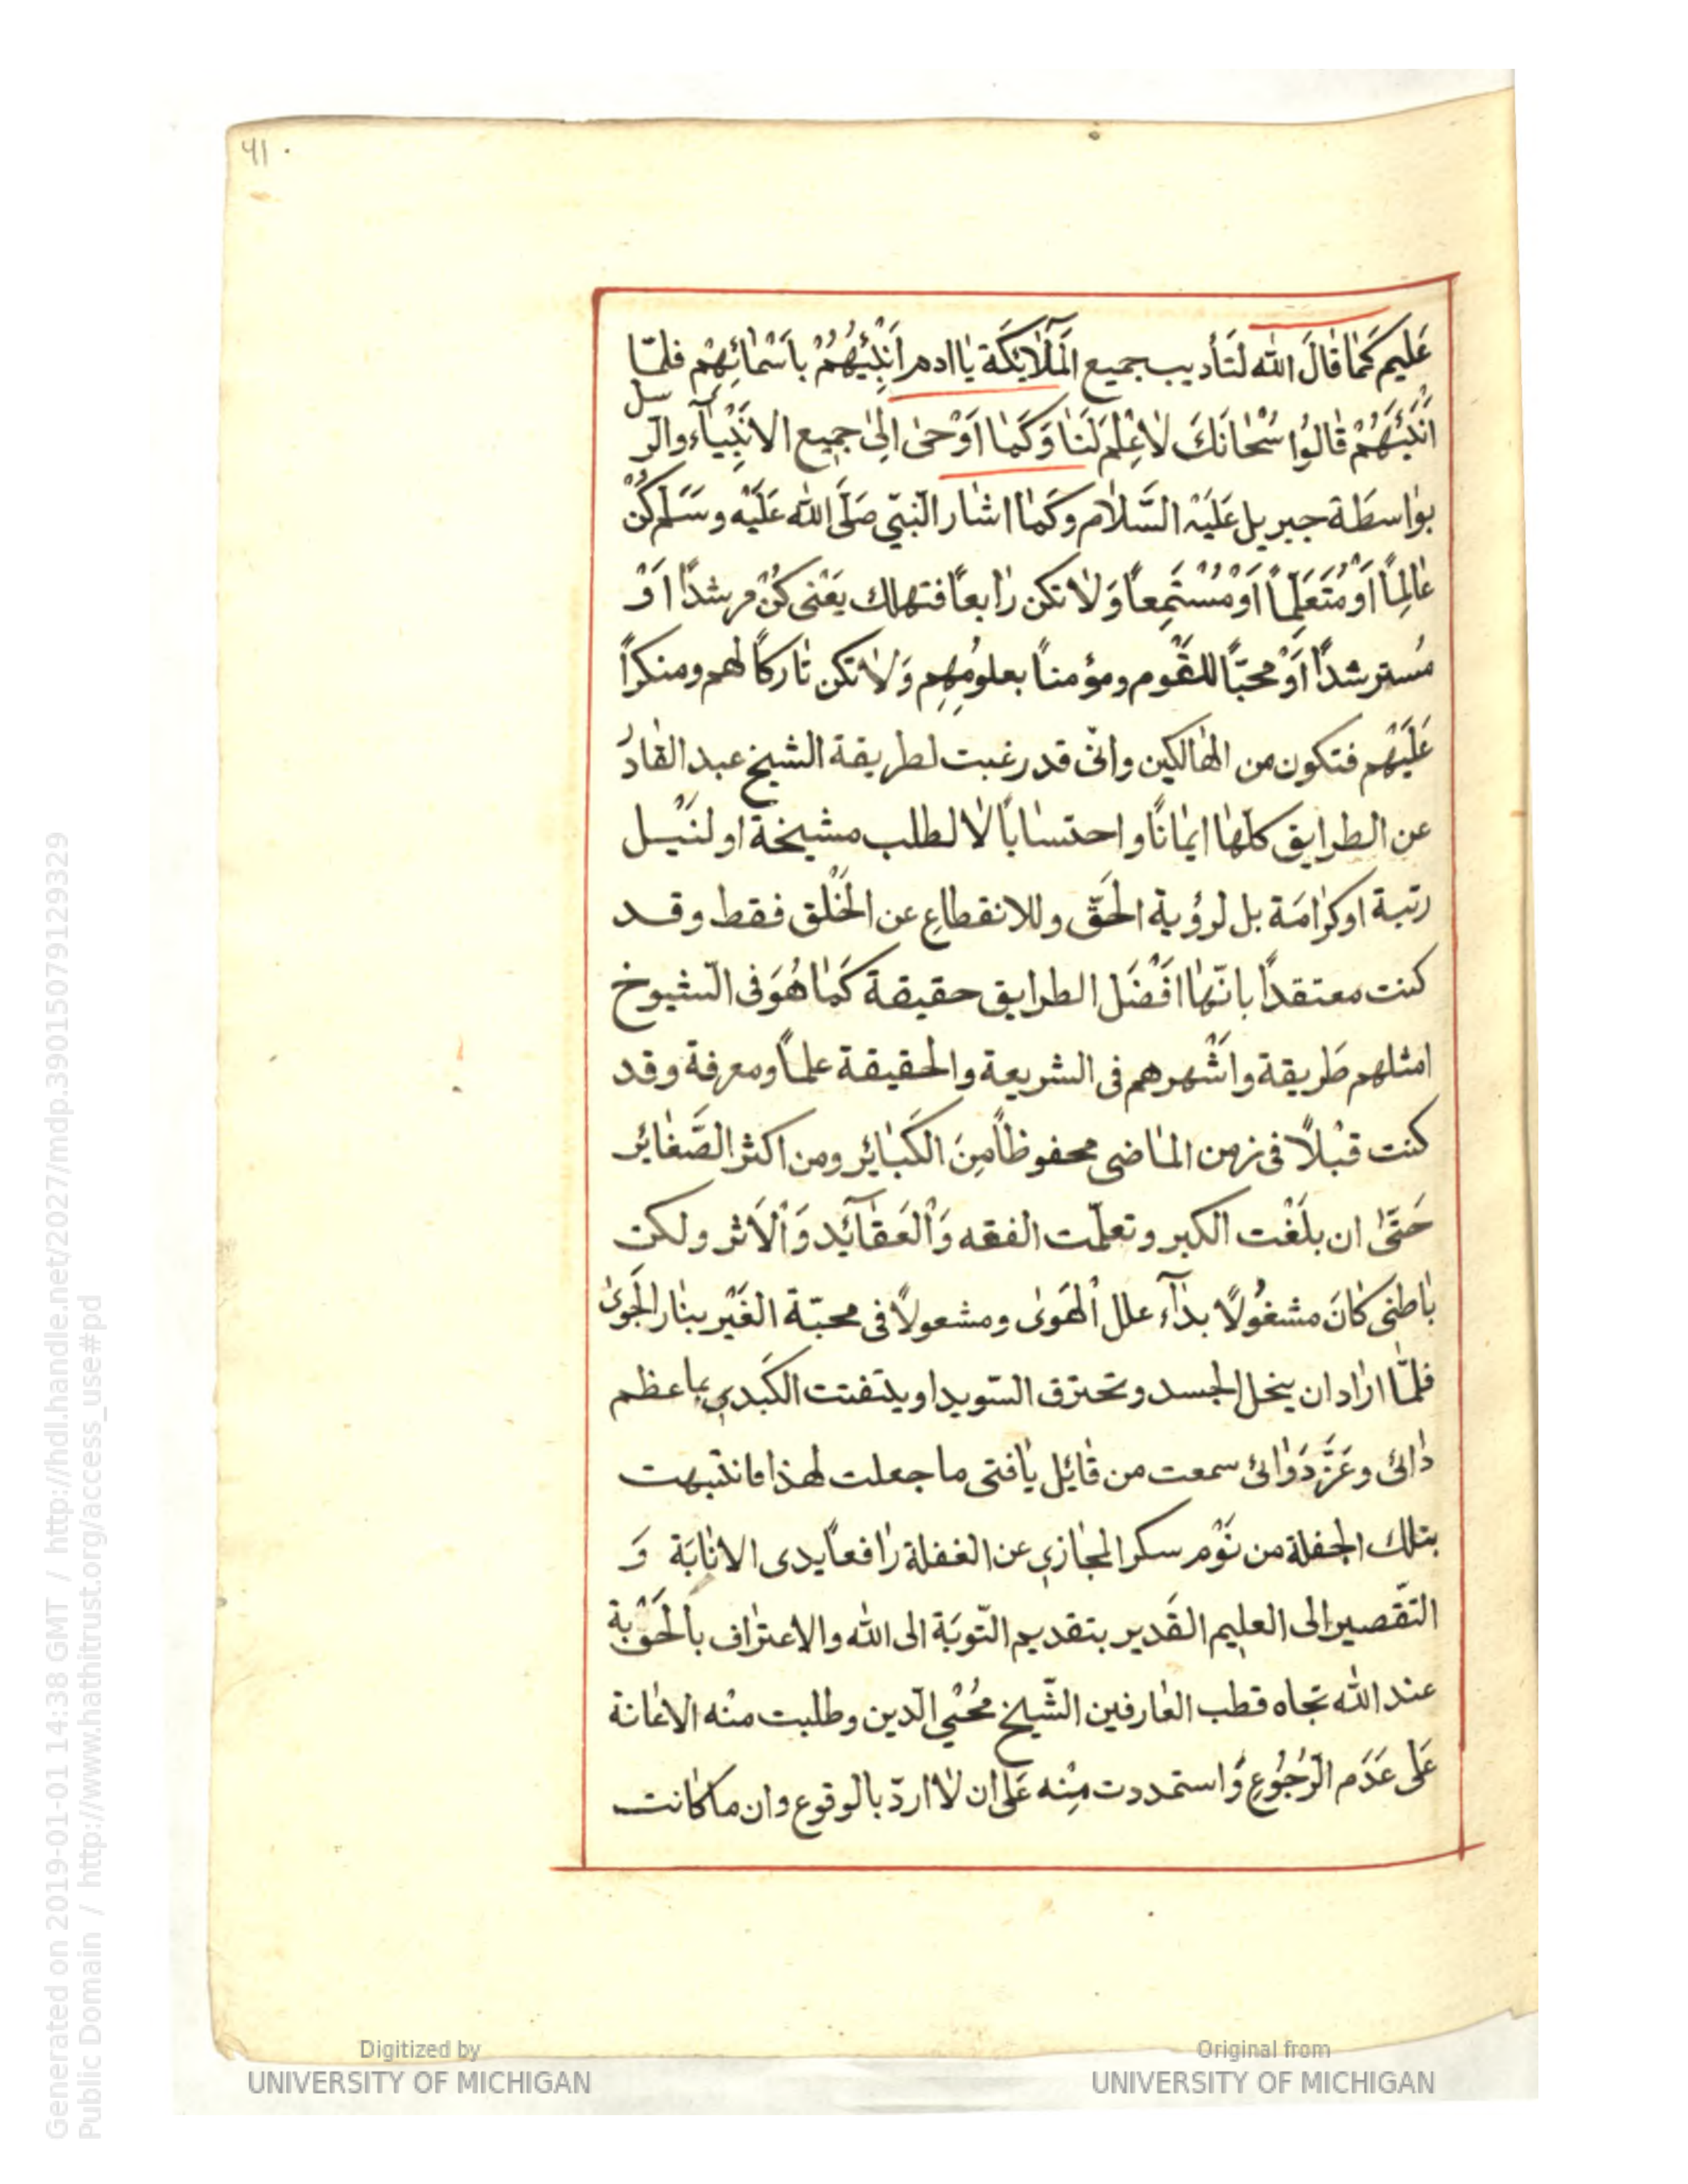 ٤١
عَليم كَمٰا قالَ الله لتَأديب جميع المَلٰٓايكَة يٰا ادم اَنْبِئهُمْ باَسْمٰائِهِمْ فلمّا
اَنْبَئَهُمْ قٰالوُا سُبْحٰانَكَ لٰا عِلْمَ لَنٰا وَكَمٰا اَوْحىٰ اِلىٰ جميع الانْبِيٰآء والرسل
بوٰاسطَة جبريل عَلَيْه السَّلٰام وكَمٰا اشٰار النّبيّ صَلَّى الله عَلَيْه وسَلَّم كُنْ
عٰالِمًا اَوْ مُتَعَلِّمًا اَوْ مُسْتَمِعاً وَلٰا تكن رٰابعاً فتهلك يَعْنى كُنْ مرشدًا اَوْ
مُسترشدًا اَوْ محبّاً للقَوم ومؤمنا بعلومُهِم وَلٰا تكن تٰاركاً لهم ومنكراً
عَلَيْهم فتكون من الهٰالكين وانّى قد رغبت لطريقة الشيخ عبد القٰادر
عن الطرايق كلّهٰا ايمٰانًا واحتسٰابًا لٰا لطلب مشيخة او لنَيْل
رتبة او كرٰامَة بل لرؤية الحَقّ وللانقطاعِ عن الخَلْق فقط وقد
كنت معتقدًا بانّهٰا افْضَل الطرايق حقيقة كَمٰا هُوَ فى الشيوخ
امثلهم طَريقة واَشْهرهم فى الشريعة والحقيقة علماً ومعرفة وقد
كنت قبْلًا فى زمن المٰاضى محفوظاً مِنَ الكَبٰائِر ومن اكثر الصَّغٰائِر
حَتّىٰ ان بلَغْت الكبر وتعلّمت الفقه وَالْعَقٰٓائِد وَالْاَثر ولكن
بٰاطنى كٰانَ مشغُولًا بدٰٓاء علل الْهَوىٰ ومشعولًا فى محبّة الغَيْر بنٰار الجَوىٰ
فلمّٰا ارٰاد ان ينحل الجسد وتحترق السّويدا ويتفتت الكَبدى بما عظم
دٰائى وعَزَّ دَوٰائى سمعت من قٰائِل يٰا فتى ما جعلت لهذا فانتبهت
بتلك الجفلة من نَوْم سكر المجٰازى عن الغفلة رٰافعاً يدى الانٰابَة وَ
التّقصير الى العليم القَدير بتقديم التّوبَة الى الله والاعترٰاف بالحَوْبة
عند الله تجاه قطب العٰارفين الشّيخ مُحْيي الّدين وطلبت منْه الاعٰانة
عَلى عَدَم الرّجُوُعِ وَاستمددت مِنْه عَلى ان لٰا اردّ بالوقوع وان ما كانت
Generated on 2019-01-01 14:38 GMT / http://hdl.handle.net/2027/mdp.39015079129329
Public Domain / http://www.hathitrust.org/access_use#pd
Digitized by
UNIVERSITY OF MICHIGAN
Original from
UNIVERSITY OF MICHIGAN